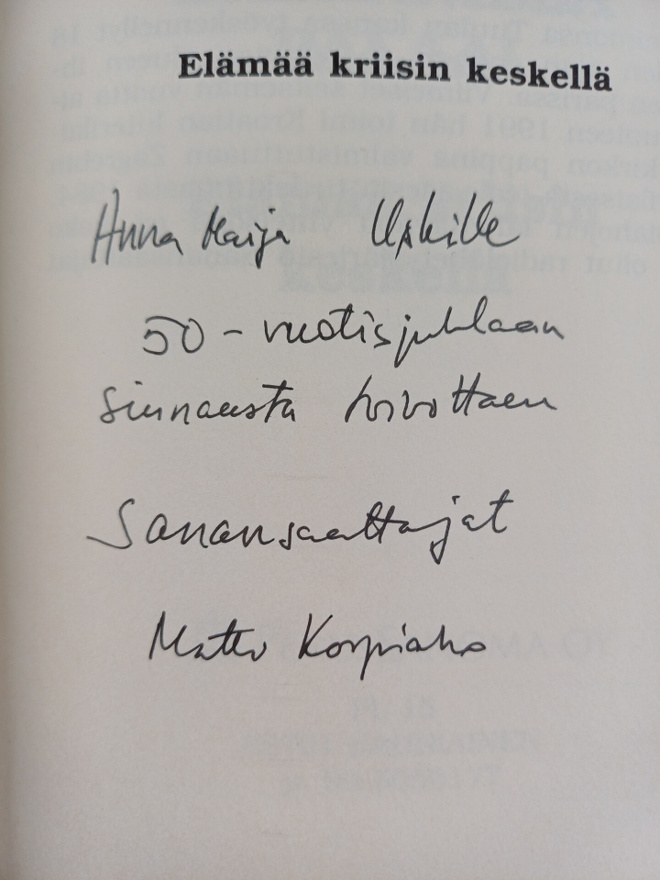 Elämää kriisin keskellä
Anna Maija Uskille
50-vuotisjuhlaan
siunausta toivottaen
Sanansaattajat
Matti Korpiaho